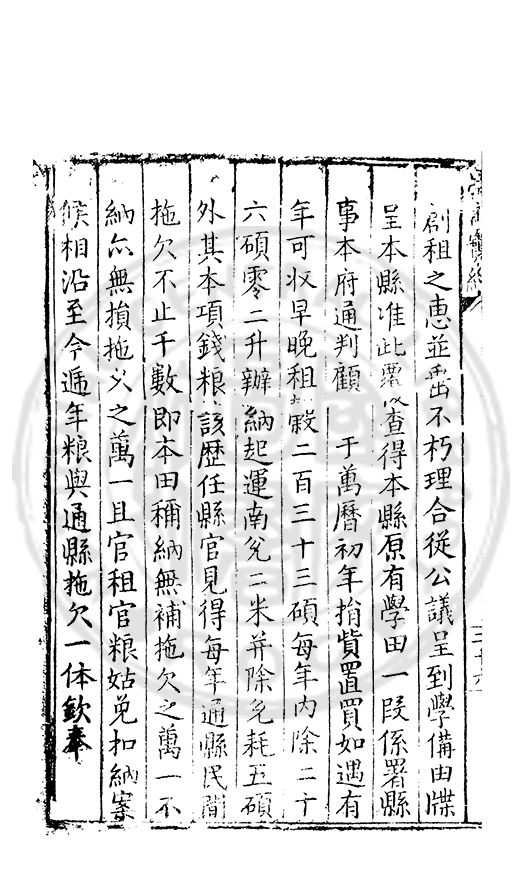 創租之惠並垂不朽理合從公議呈到學備由牒
呈本縣准此覆查得本縣原有學田一段係署縣
事本府通判顧 于萬曆初年捐貲置買如遇有
年可收早晚租穀二百三十三碩每年內除二十
六碩零二升辦納起運南兌二米并除兌耗五碩
外其本項錢粮該歷任縣官見得每年通縣民間
拖欠不止千數即本田稱納無補拖欠之萬一不
納亦無損拖欠之萬一且官租官粮姑免扣納案
候相沿至今遞年粮與通縣拖欠一体欽奉